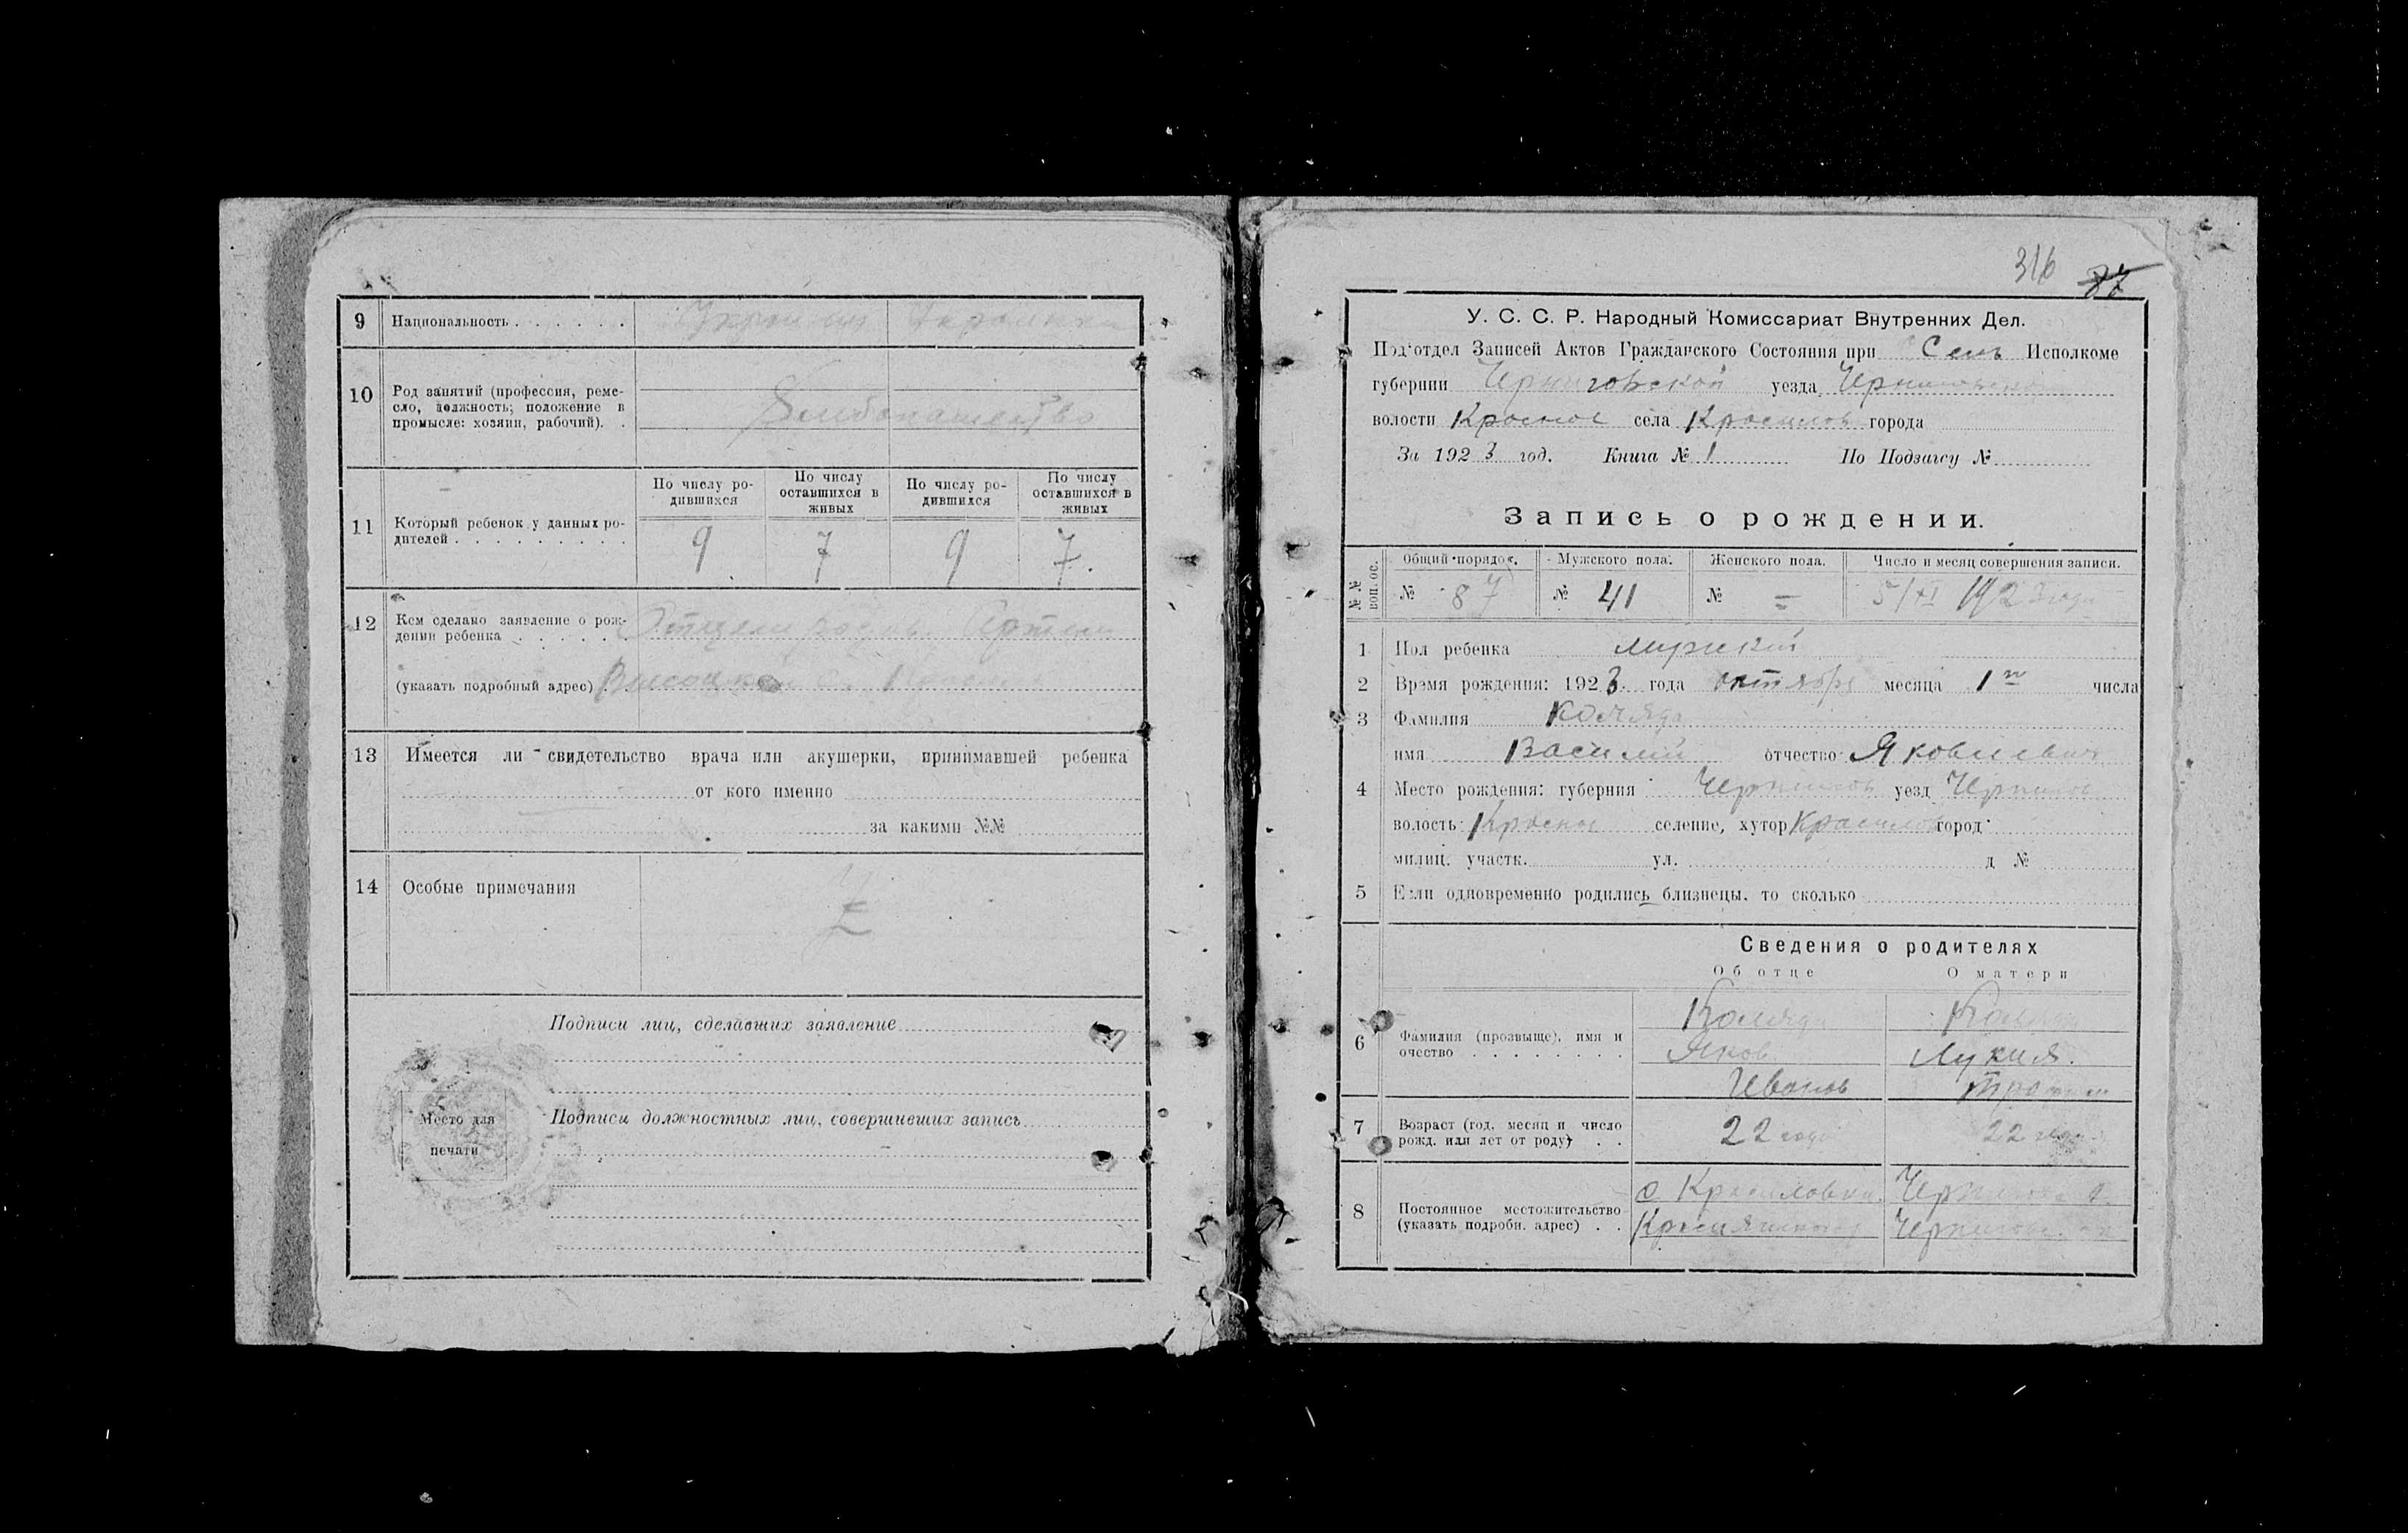 9 Национальность . . . . . .
10 Род занятий (профессия, реме-
сло, должность; положение в
промысле: хозяин, рабочий). .
По числу ро-
дившихся
По числу
оставшихся в
живых
По числу ро-
дившихся
По числу
оставшихся в
живых
11 Который ребенок у данных ро-
дителей . . . . . . . . .
9 7 9 7.
12 Кем сделано заявление о рож-
дении ребенка . . . . .
(указать подробный адрес)
13 Имеется ли свидетельство врача или акушерки, принимавшей ребенка
от кого именно
за какими №№
14 Особые примечания
Подписи лиц, сделавших заявление
Место для
печати
Подписи должностных лиц, совершивших запись
316 87
У. С. С. Р. Народный Комиссариат Внутренних Дел.
Под‘отдел Записей Актов Гражданского Состояния при Сель Исполкоме
губернии Черниговской уезда
волости Красное села города
За 1923 год. Книга № 1 По Подзагсу №
Запись о рождении.
№№ вопрос. Общий порядок. Мужского пола. Женского пола. Число и месяц совершения записи.
№ 87 № 41 № = 5/XI 1923 года
1 Пол ребенка мужской
2 Время рождения: 1923 года октября месяца 1го числа
3 Фамилия Коляда
имя Василий отчество Яковлевич
4 Место рождения: губерния Чернигов уезд Чернигов
волость Красное селение, хутор город
милиц. участк. ул. д №
5 Если одновременно родились близнецы, то сколько
Сведения о родителях
Об отце О матери
6 Фамилия (прозвище), имя и
очество . . . . . . . .
Коляда
Яков Лукия.
Иванов
7 Возраст (год, месяц и число
рожд. или лет от роду) . .
22 года 22 года
8 Постоянное местожительство
(указать подробн. адрес) . .
с. Красиловка